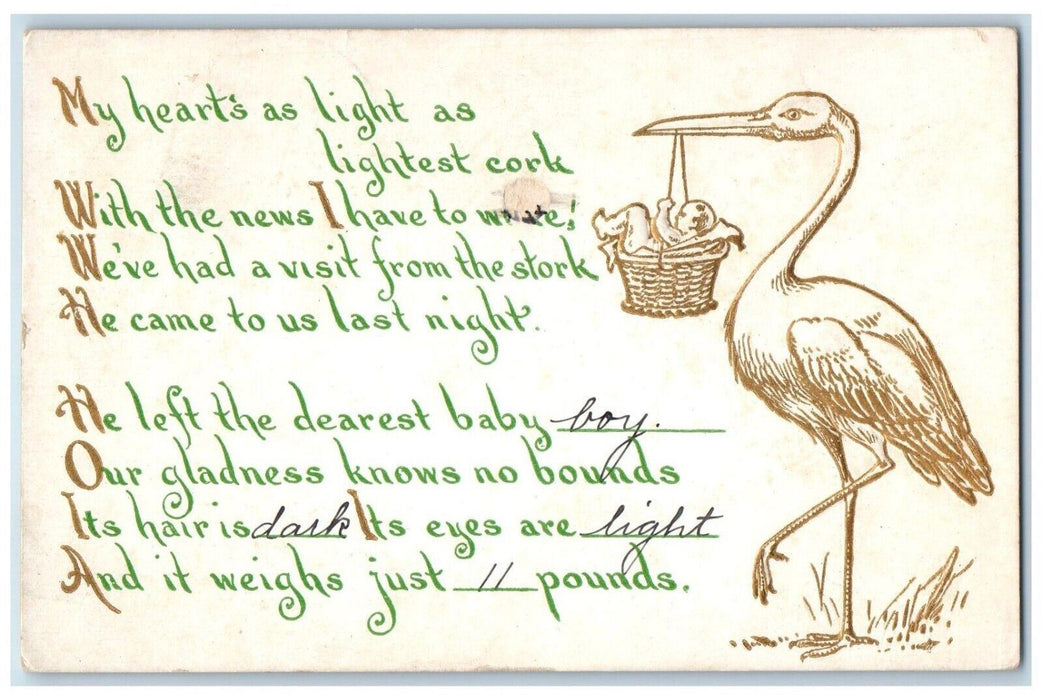 My heart's as light as
lightest cork
With the news I have to
We've had a visit from the stork
He came to us last night.
He left the dearest baby boy.
Our gladness knows no bounds
Its hair is dark Its eyes are light
And it weighs just 11 pounds.